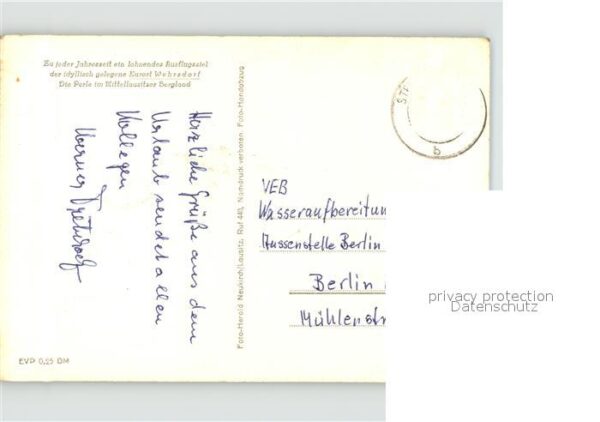 Zu jeder Jahreszeit ein lohnendes Ausflugsziel
der idyllisch gelegene Kurort Wehrsdorf
Die Perle im Mittellausitzer Bergland
Herzliche Grüße aus dem
Urlaub sendet allen
Kollegen
Werner
EVP 0,25 DM
Foto-Herold Neukirch/Lausitz, Ruf 440, Nachdruck verboten Foto-Handabzug
ST
b
VEB
Wasseraufbereitun
Aussenstelle Berlin
Berlin
Mühlenstr
privacy protection
Datenschutz